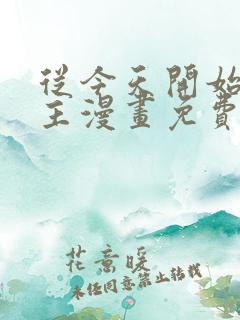 從今天開始
王漫畫免費
花意暖
未經同意禁止轉載